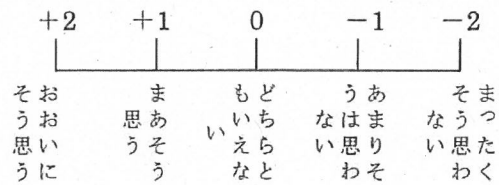 +2 +1 0 −1 −2
おおいに
そう思う
まあそう
思う
どちらと
もいえな
い
あまりそ
うは思わ
ない
まったく
そう思わ
ない